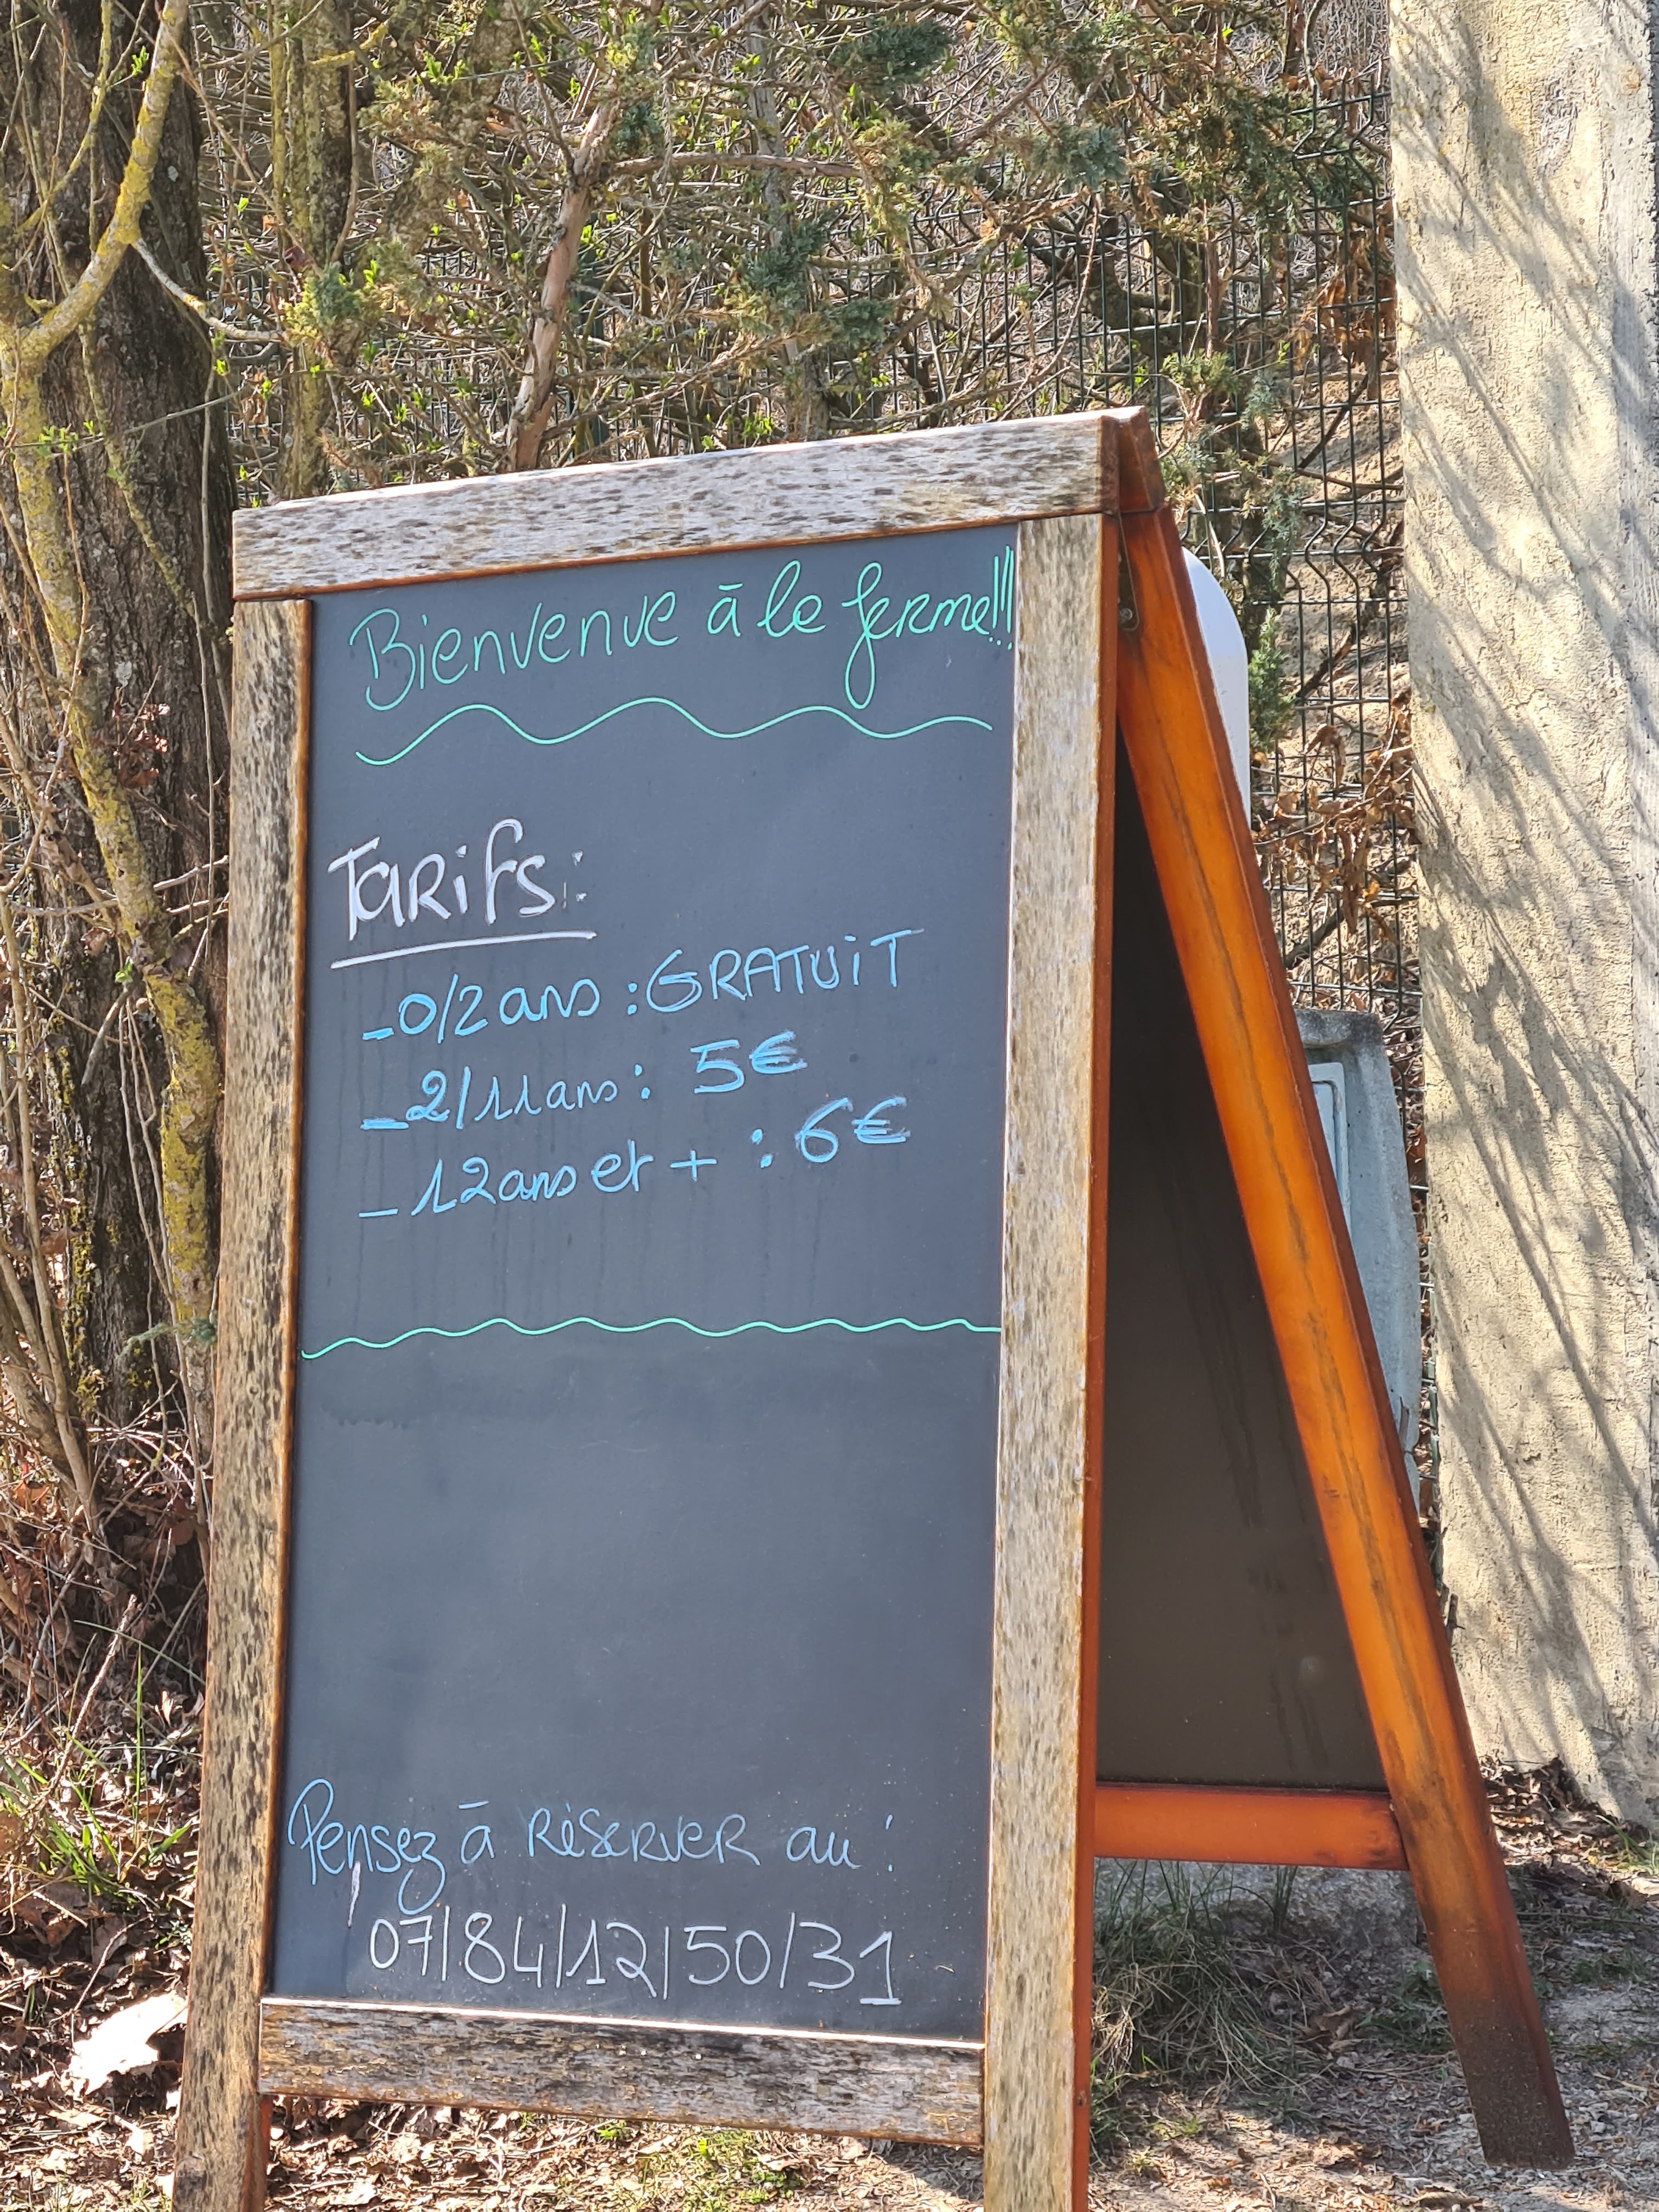 Bienvenue à le ferme!!!
Tarifs:
-0/2 ans : GRATUiT
-2/11 ans : 5€
-12 ans et + : 6€
Pensez à RéSERVER au :
07/84/12/50/31